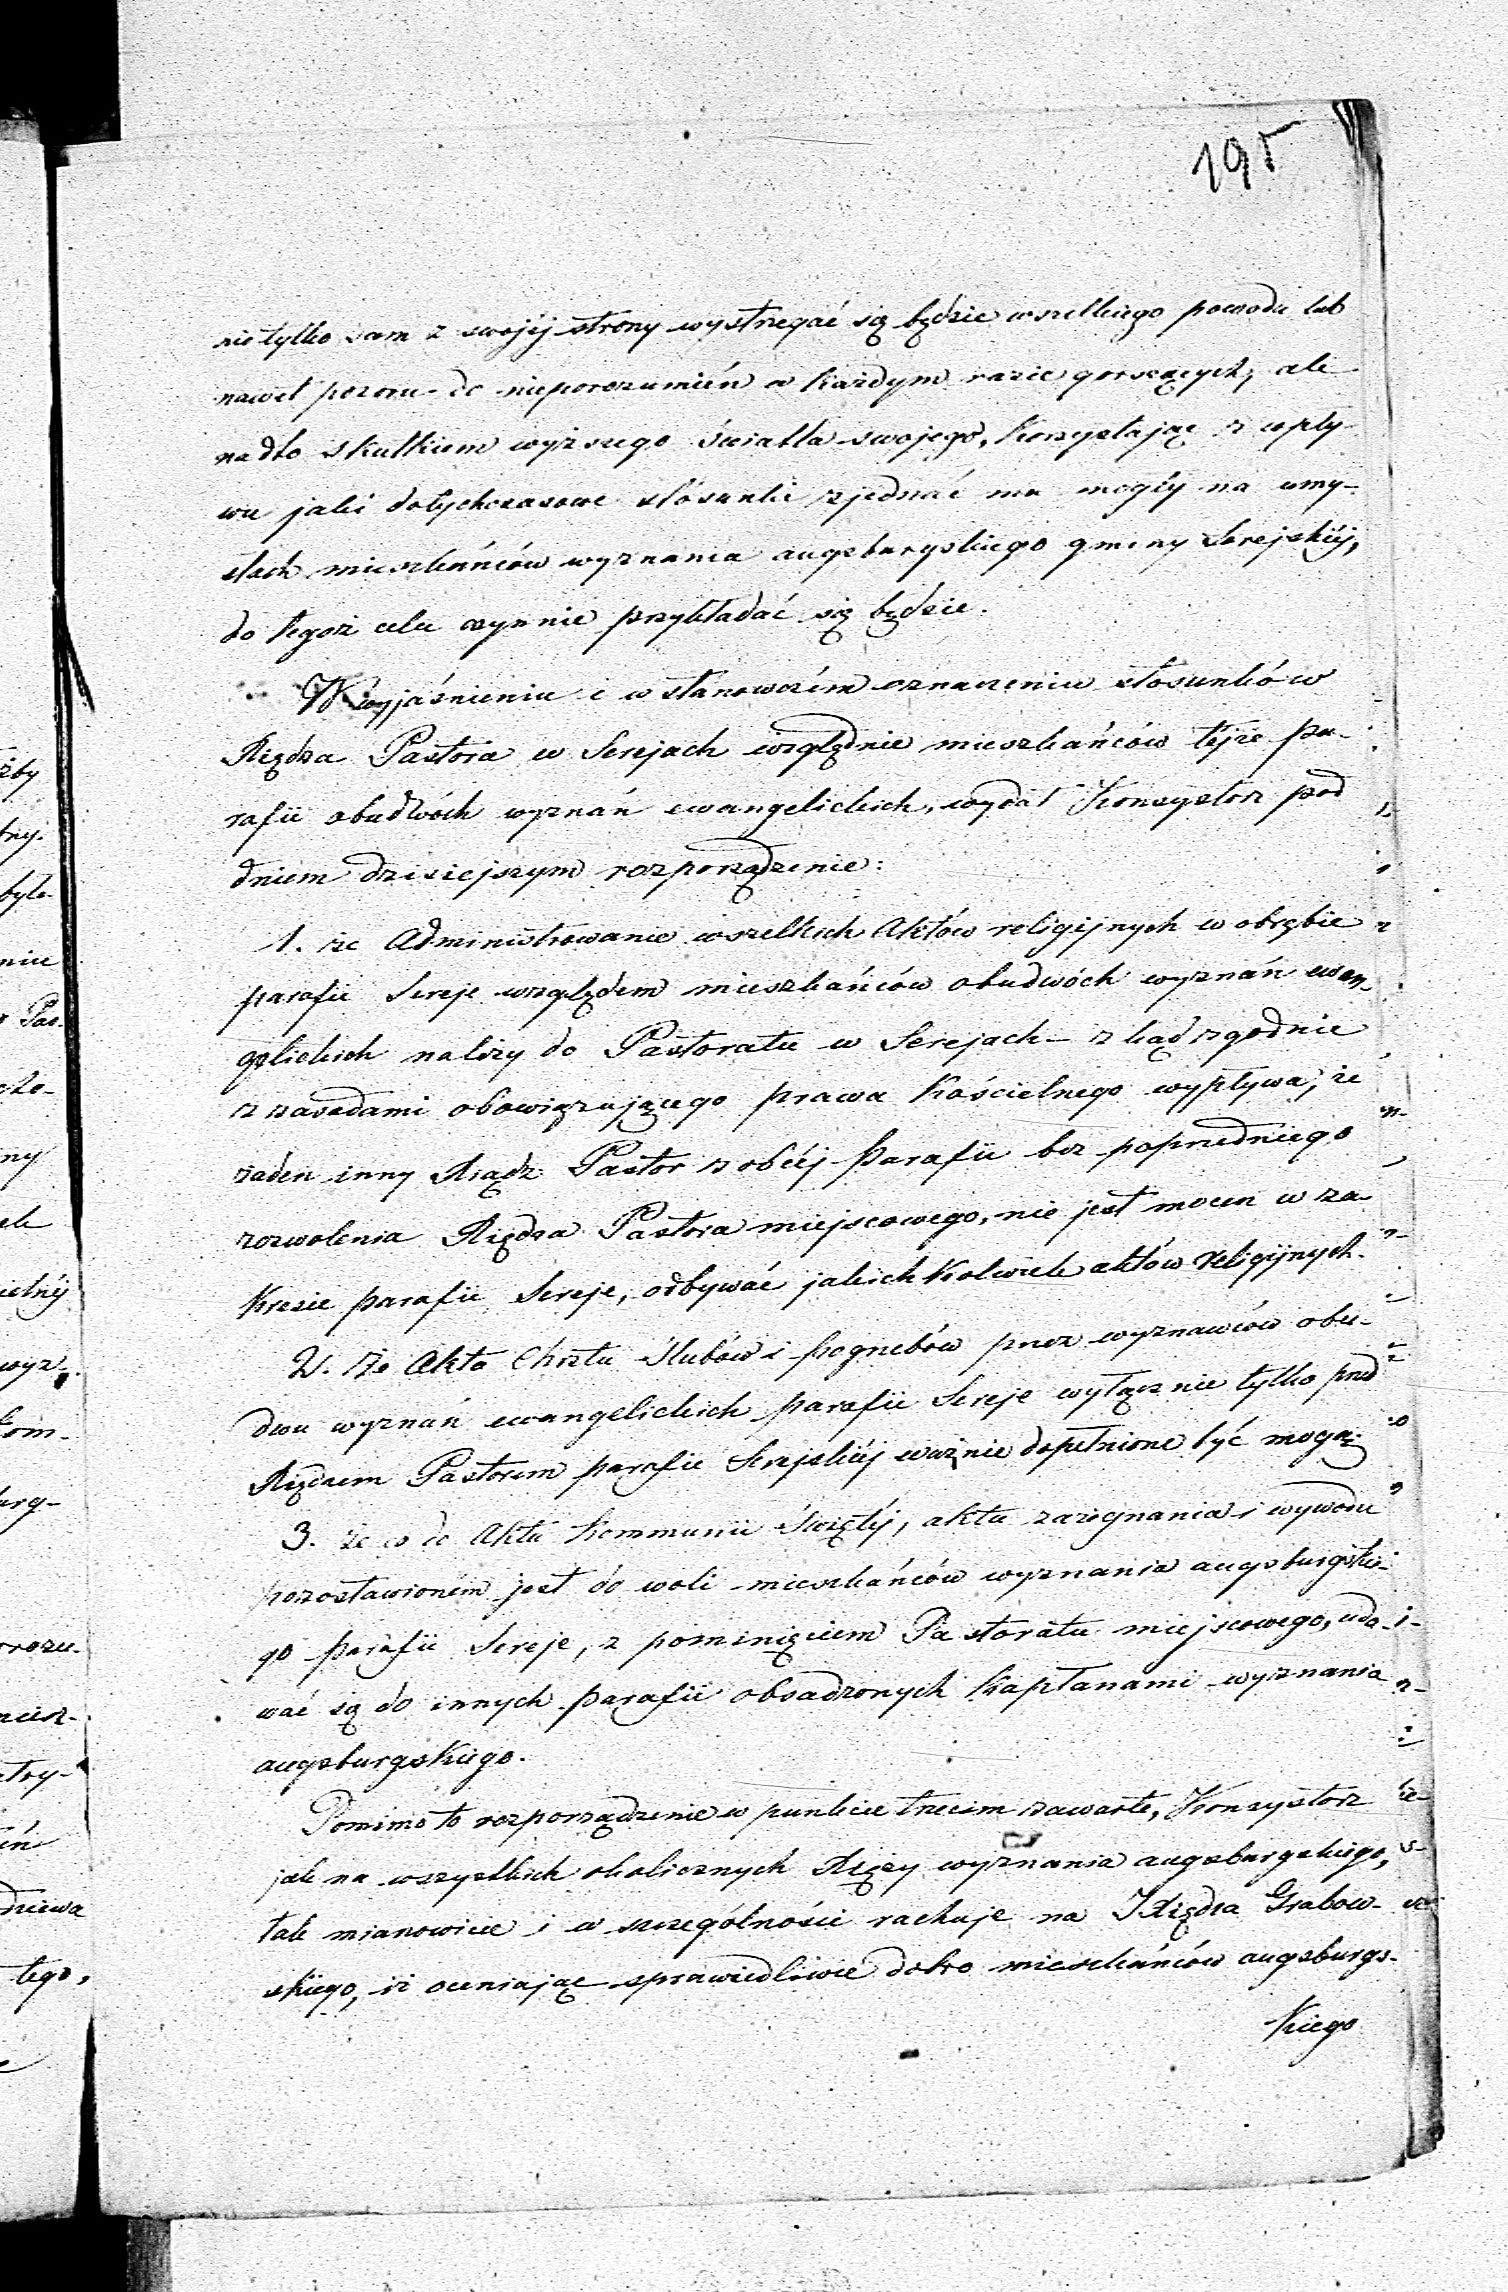 195
nietylko sam z swojéj strony wystrzegać się będzie wszelkiego powodu lub
nawet pozoru do nieporozumień w każdym razie gorszących, ale
nadto skutkiem wyższego światła swojego, korzystając z wpły-
wu jaki dotychczasowe stósunki zjednać mu mogły na umy-
słach mieszkańców wyznania augsburgskiego gminy Serejskiéj,
do tegoż celu czynnie przykładać się będzie.
W wyjaśnieniu i w stanowczém oznaczeniu stosunków
Xiędza Pastora w Serejach względnie mieszkańców téjże pa-
rafii obudwóch wyznań ewangelickich, wydał Konsystorz pod
dniem dzisiejszym rozporządzenie:
1. że Administrowanie wszelkich Aktów religijnych w obrębie
parafii Sereje względem mieszkańców obudwóch wyznań ewan-
gelickich należy do Pastoratu w Serejach – z kąd zgodnie
z zasadami obowiązującego prawa Kościelnego wypływa, że
żaden inny Xiądz Pastor z obcéj Parafii bez poprzedniego
zezwolenia Xiędza Pastora miejscowego, nie jest mocen w za-
kresie parafii Sereje, odbywać jakichkolwiek aktów religijnych.
2. że Akta Chrztu Slubów i pogrzebów przez wyznawców obu-
dwu wyznań ewangelickich parafii Sereje wyłącznie tylko przed
Xiędzem Pastorem parafii Serejskiéj ważnie dopełnione być mogą.
3. że co do Aktu Kommunii Swiętéj, aktu zażegnania i wywodu
pozostawioném jest do woli mieszkańców wyznania augsburgskie-
go parafii Sereje, z pominięciem Pastoratu miejscowego, uda-
wać się do innych parafii obsadzonych Kapłanami wyznania
augsburgskiego.
Pomimo to rozporządzenie w punkcie trzecim zawarte, Konsystorz
jak na wszystkich okolicznych Xięży wyznania augsburgskiego,
tak mianowicie i w szczególności rachuje na JXiędza Grabow-
skiego, iż oceniając sprawiedliwie dobro mieszkańców augsburgs-
kiego